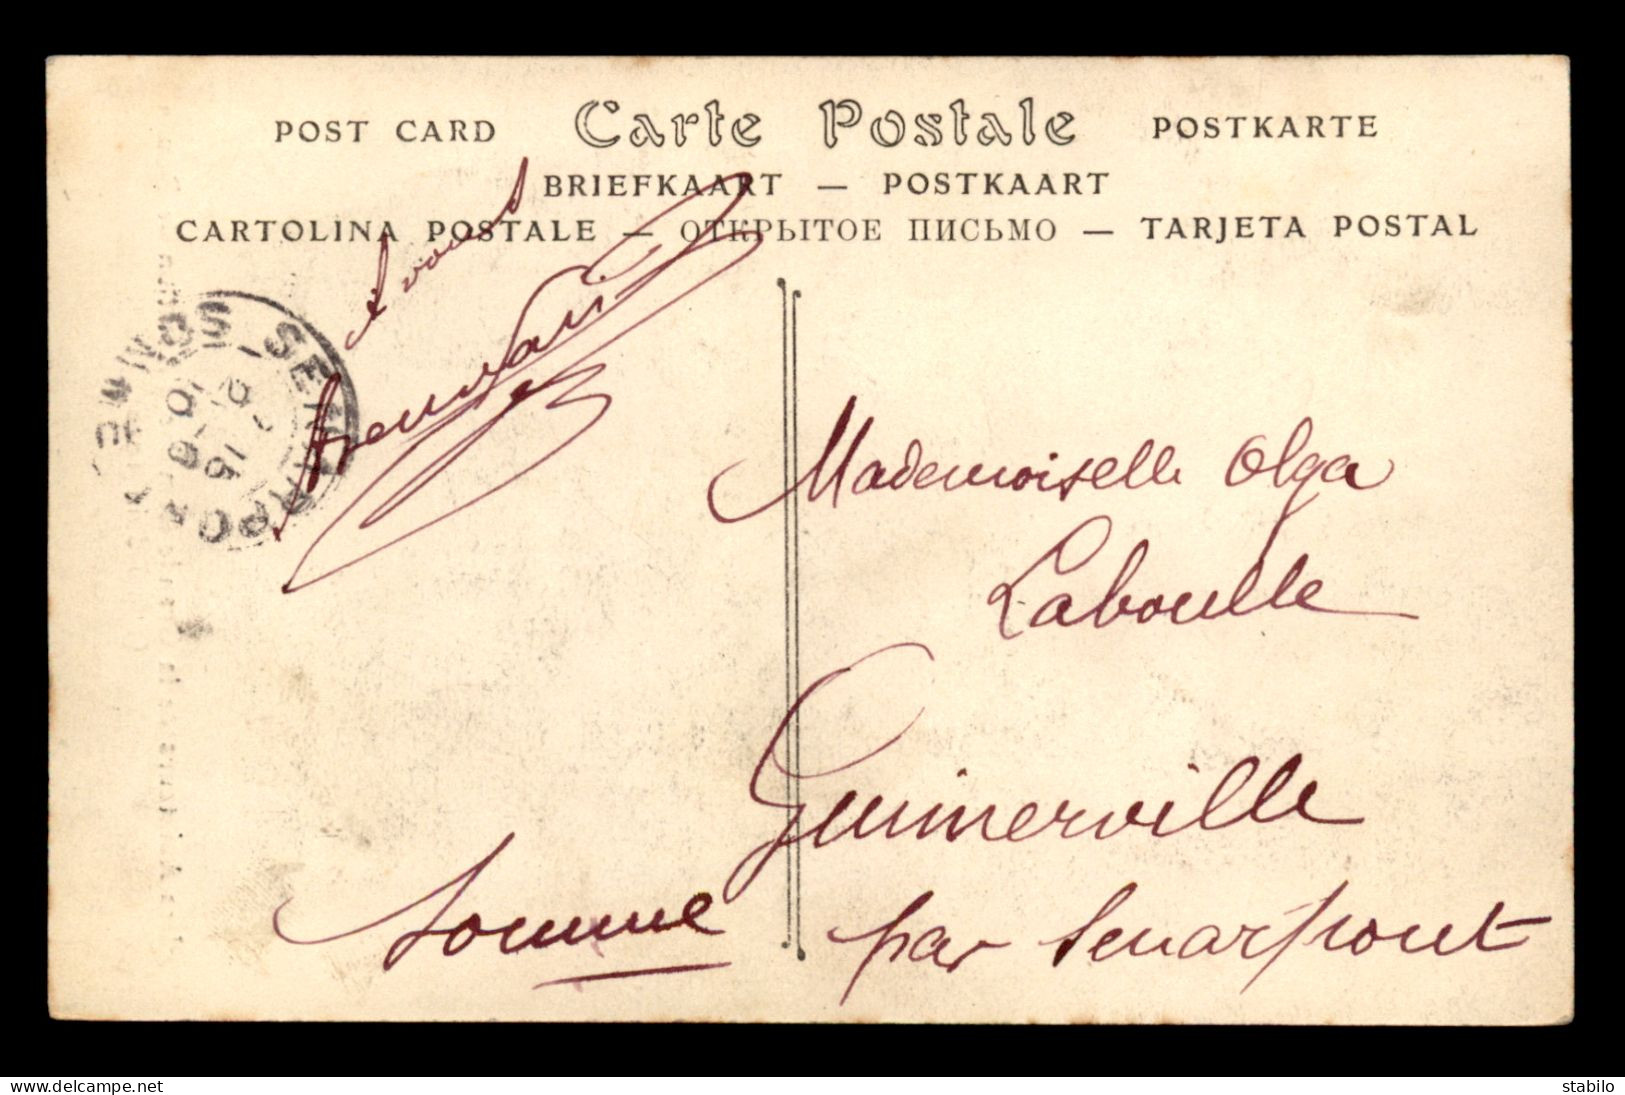 POST CARD Carte Postale POSTKARTE
BRIEFKAART — POSTKAART
CARTOLINA POSTALE — ОТКРЫТОЕ ПИСЬМО — TARJETA POSTAL
Mademoiselle Olga
Laboulle
Guimerville
par Senarpont
Somme
delcampe.net
stabilo